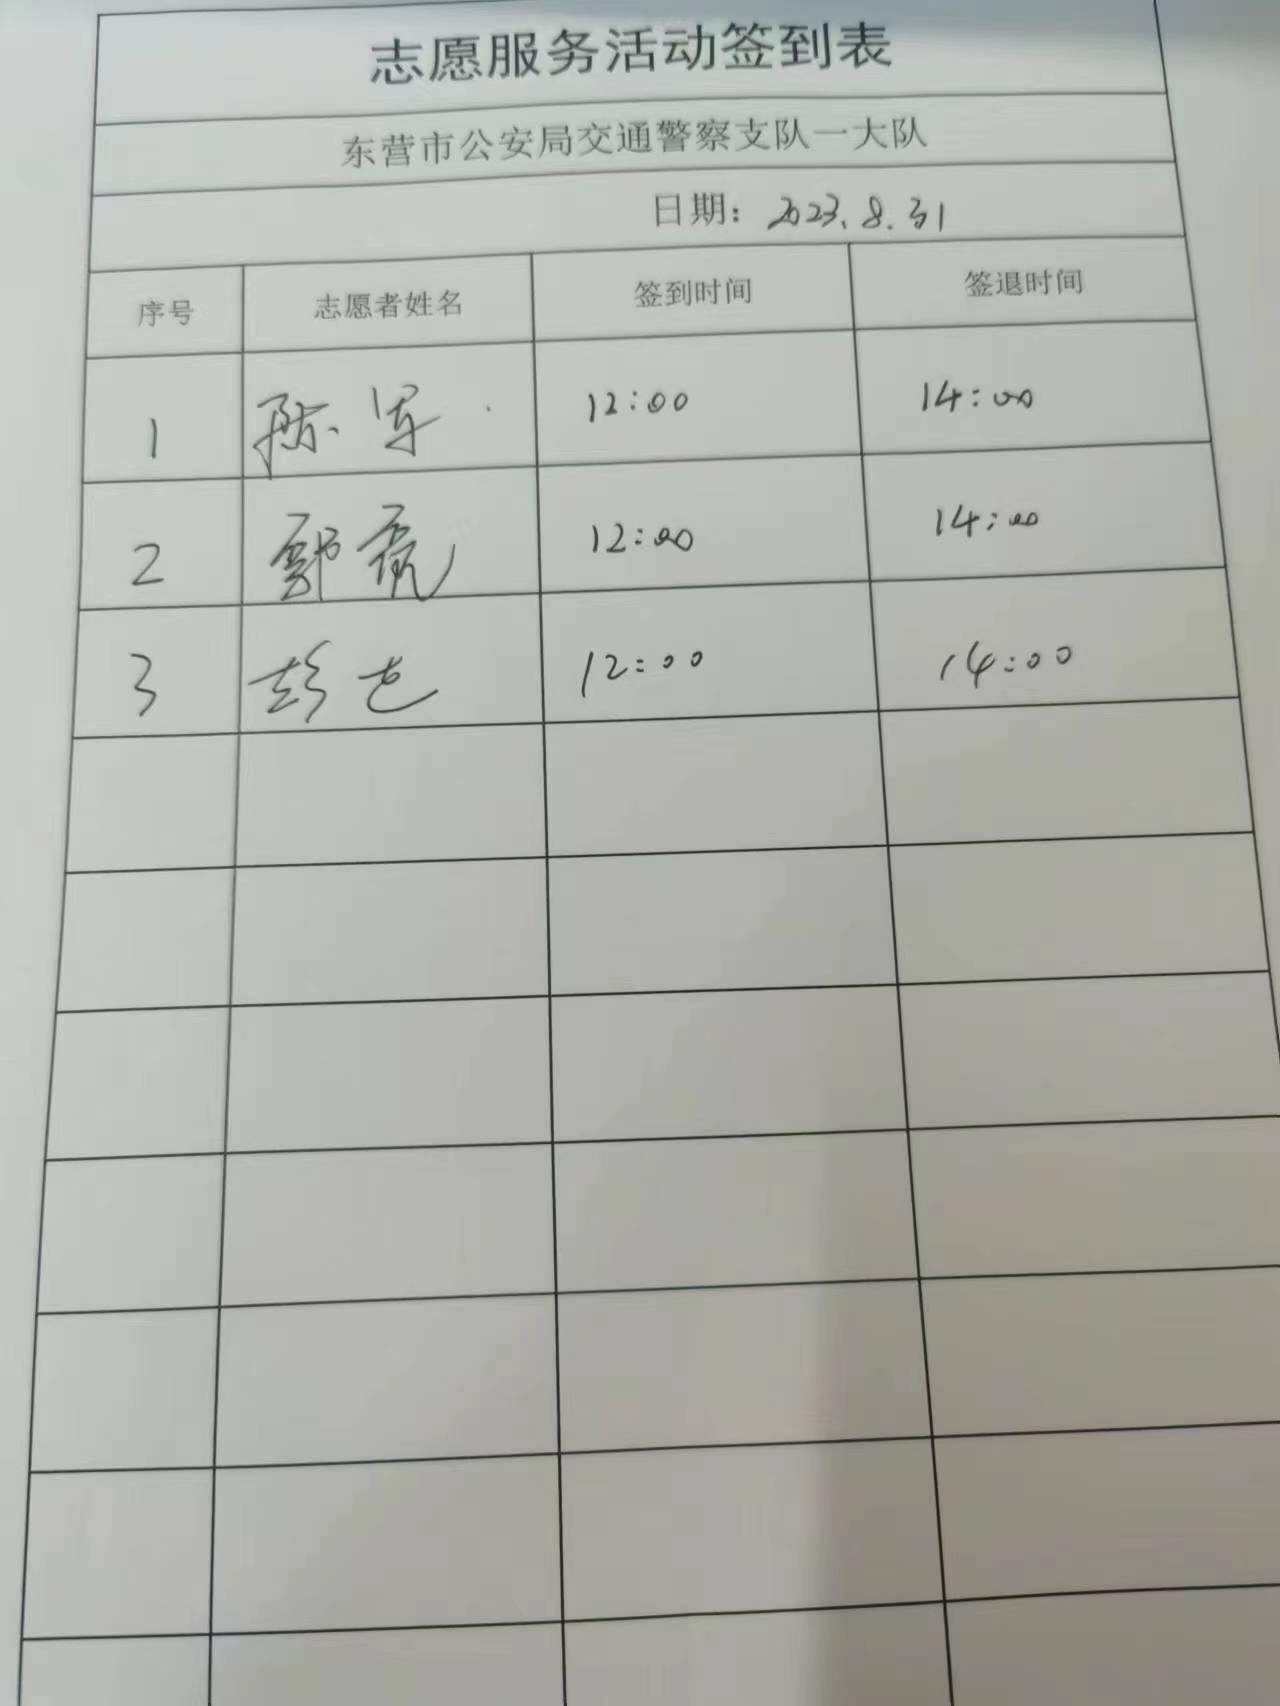 志愿服务活动签到表
东营市公安局交通警察支队一大队
日期：2023.8.31
序号 志愿者姓名 签到时间 签退时间
1 陈军 12:00 14:00
2 12:00 14:00
3 彭 12:00 14:00